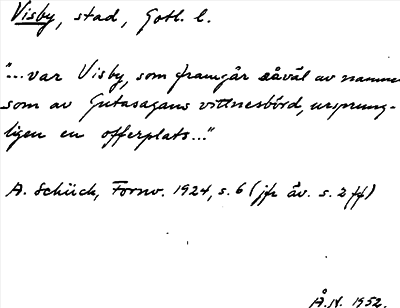 Visby, stad, Gotl. l.
"...var Visby, som framgår såväl av namnet
som av Gutasagans vittnesbörd, ursprung-
ligen en offerplats..."
A. Schück, Fornv. 1924, s. 6 (jfr äv. s. 2 ff)
Å.H. 1952.